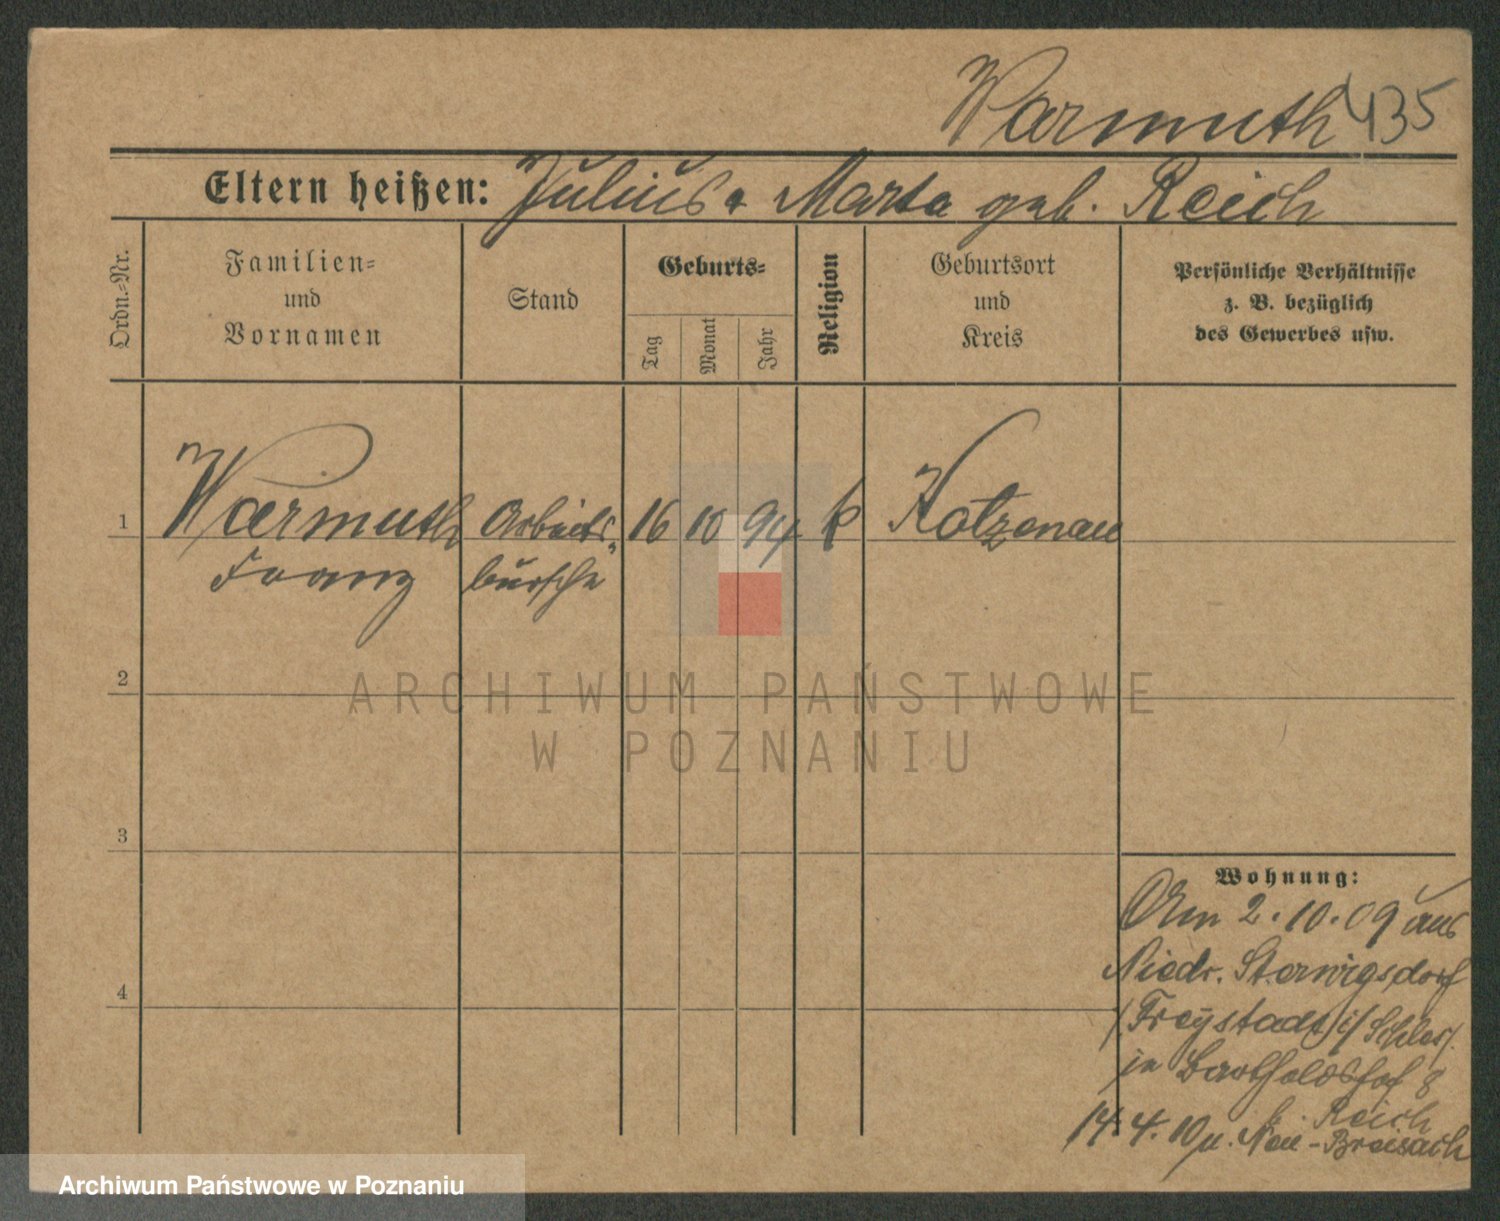 Warmuth 435
Eltern heißen: Julius & Marta geb. Reich
Ordn.-Nr.
Familien-
und
Vornamen
Stand
Geburts-
Tag
Monat
Jahr
Religion
Geburtsort
und
Kreis
Persönliche Verhältnisse
z. B. bezüglich
des Gewerbes usw.
1 Warmuth Arbeits- 16 10 94 k Kotzenau
Franz bursche
2
3
4
Wohnung:
Am 2.10.09 aus
Niedr. Herwigsdorf
(Freystadt) i/ Schles.
in Bartholdshof 8
b. Reich
14.4.10 n. Neu-Breisach
ARCHIWUM PAŃSTWOWE
W POZNANIU
Archiwum Państwowe w Poznaniu